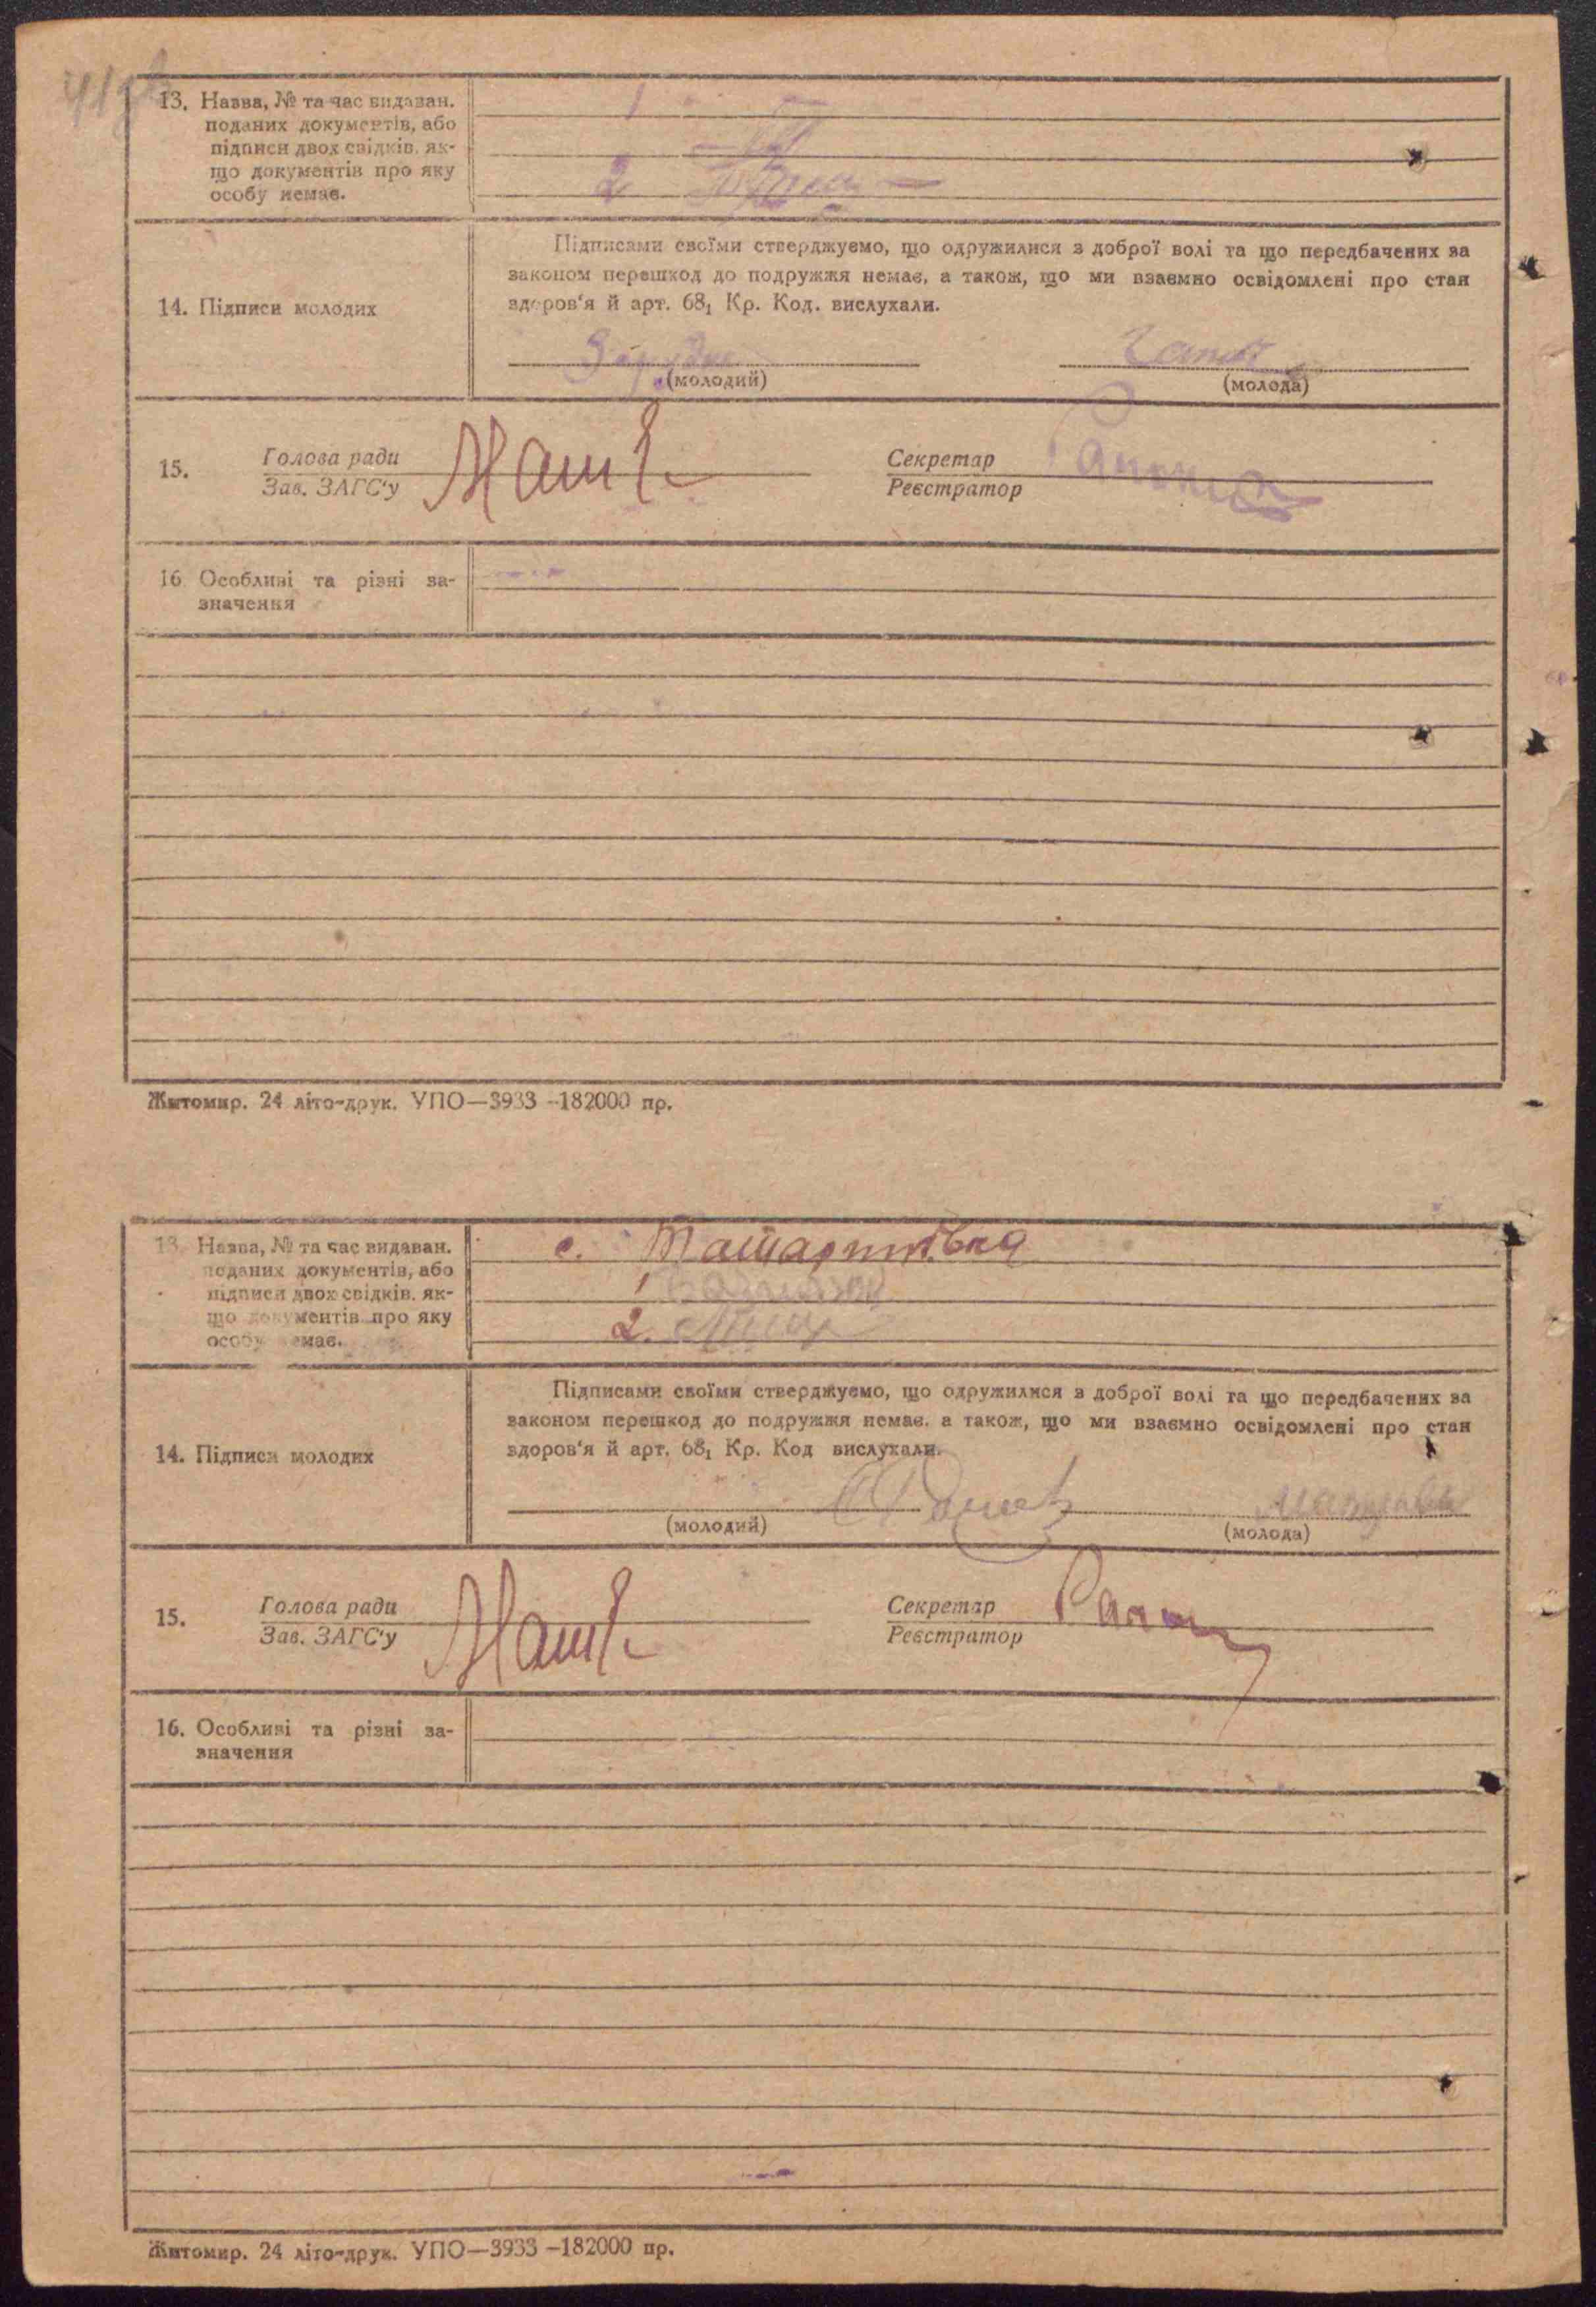 13. Назва, № та час видаван.
поданих документів, або
підписи двох свідків, як-
що документів про яку
особу немає.
1
2
14. Підписи молодих
Підписами своїми стверджуємо, що одружилися з доброї волі та що передбачених за
законом перешкод до подружжя немає, а також, що ми взаємно освідомлені про стан
здоров'я й арт. 68₁ Кр. Код. вислухали.
(молодий)
(молода)
15.
Голова ради
Зав. ЗАГС'у
Секретар
Реєстратор
16 Особливі та різні за-
значення
Житомир. 24 літо-друк. УПО—3933 -182000 пр.
13. Назва, № та час видаван.
поданих документів, або
підписи двох свідків, як-
що документів про яку
особу немає.
с.
1
2.
14. Підписи молодих
Підписами своїми стверджуємо, що одружилися з доброї волі та що передбачених за
законом перешкод до подружжя немає, а також, що ми взаємно освідомлені про стан
здоров'я й арт. 68₁ Кр. Код вислухали.
(молодий)
(молода)
15.
Голова ради
Зав. ЗАГС'у
Секретар
Реєстратор
16. Особливі та різні за-
значення
Житомир. 24 літо-друк. УПО—3933 -182000 пр.